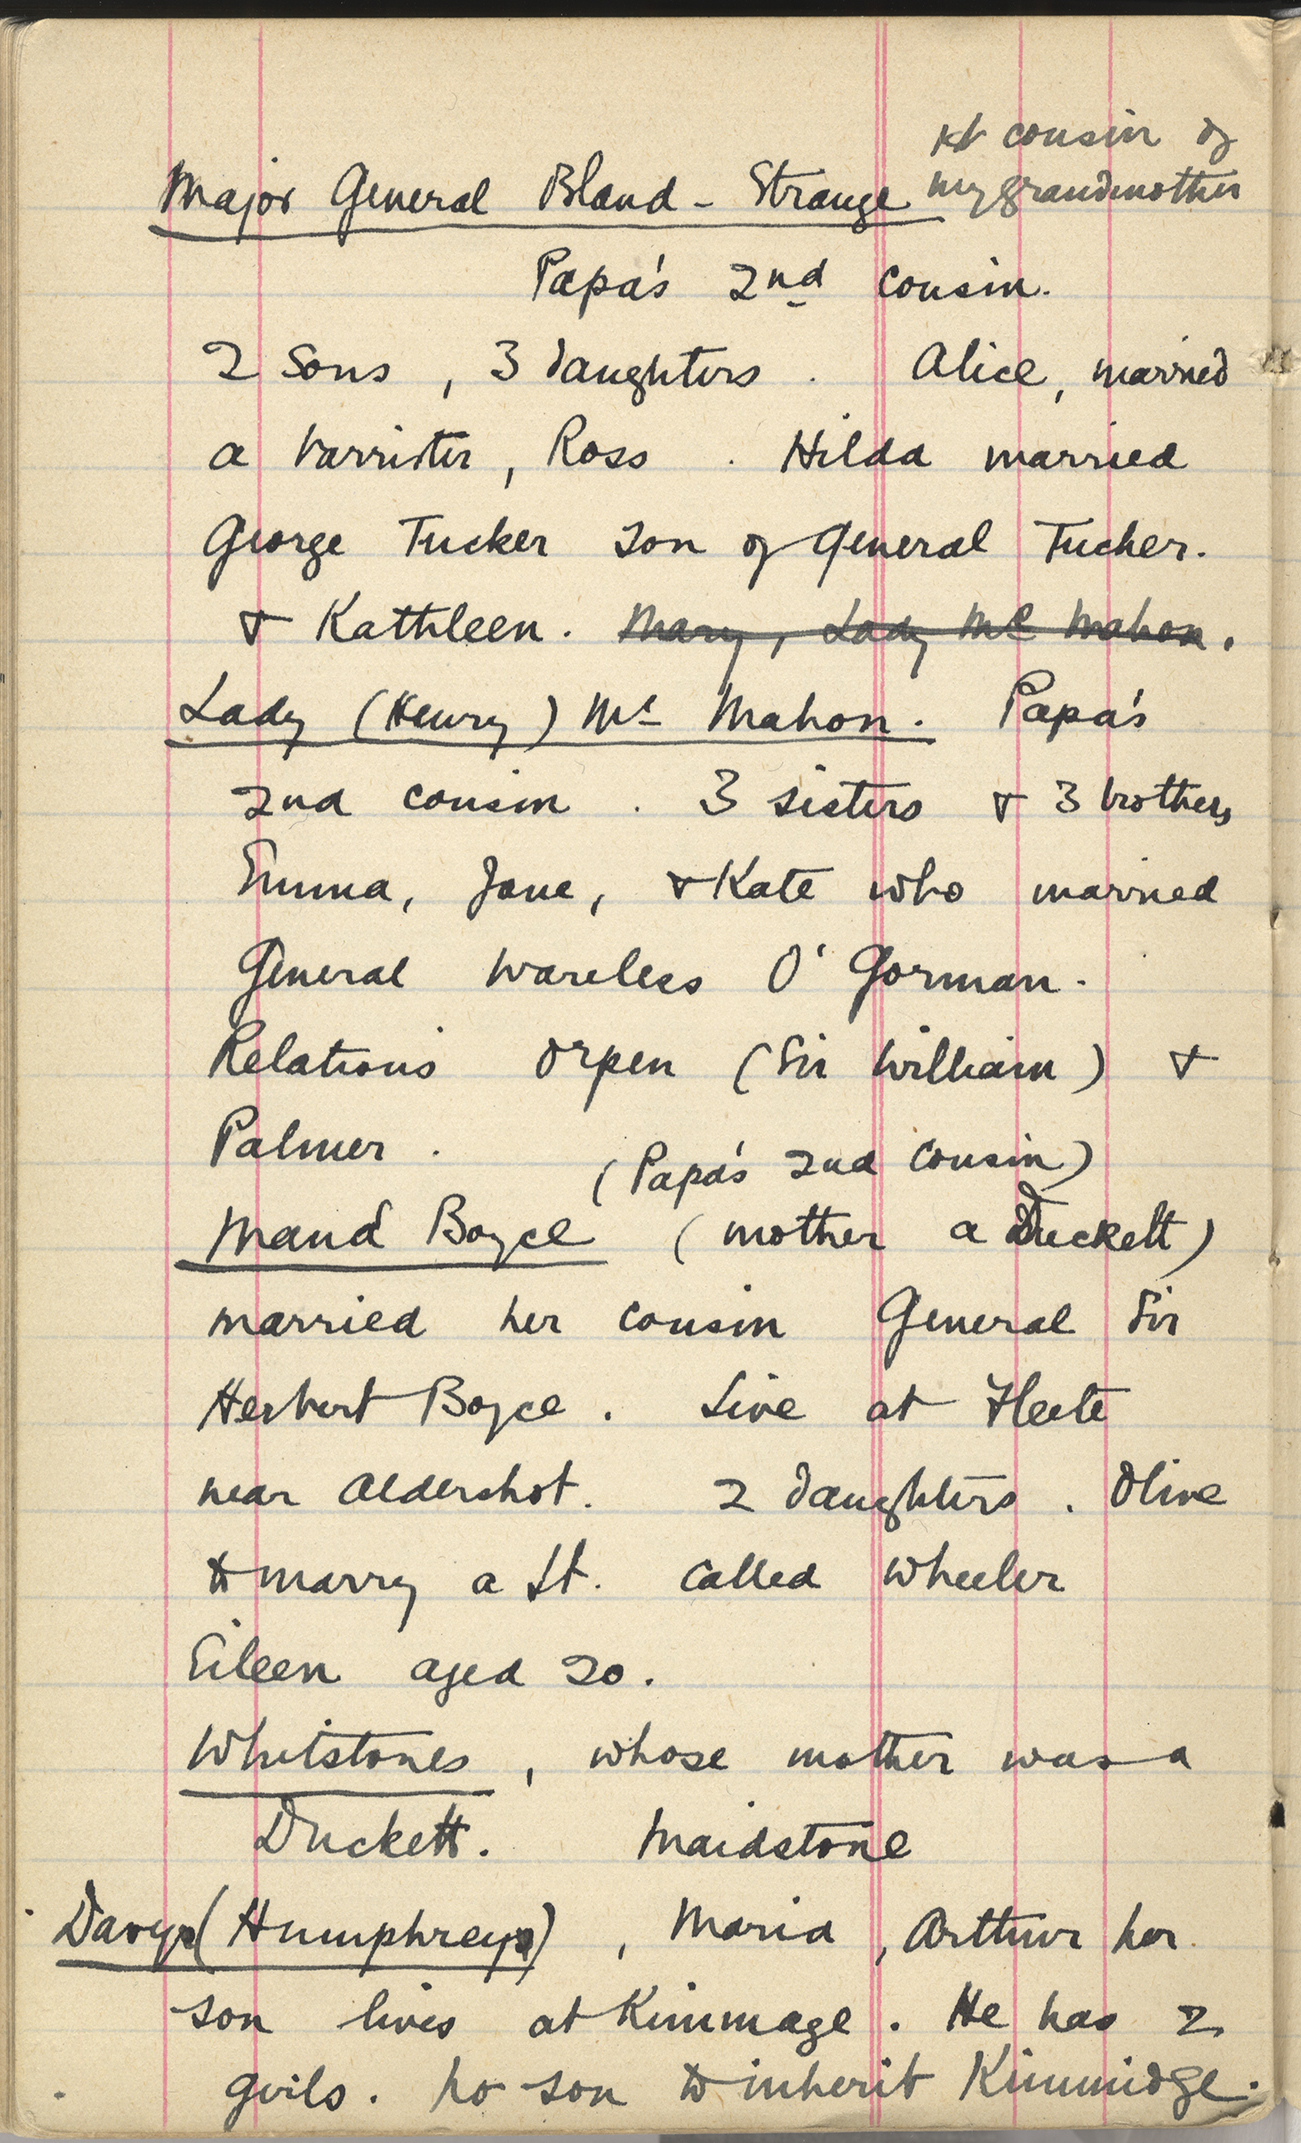 1st cousin of
my grandmother
Major General Bland - Strange
Papa's 2nd cousin.
2 Sons, 3 daughters. Alice, married
a barrister, Ross. Hilda married
George Tucker son of General Tucker.
& Kathleen. Mary, Lady Mc Mahon.
Lady (Henry) Mc Mahon. Papa's
2nd cousin. 3 sisters & 3 brothers
Emma, Jane, & Kate who married
General Wareless O'Gorman.
Relations Orpen (Sir William) &
Palmer.
(Papa's 2nd cousin)
Maud Boyce (mother a Duckett)
married her cousin General Sir
Herbert Boyce. Live at Fleete
near Aldershot. 2 daughters. Olive
to marry a Lt. called Wheeler
Eileen aged 20.
Whitstones, whose mother was a
Duckett. Maidstone
Davys (Humphreys), Maria, Arthur her
son lives at Kimmage. He has 2
girls. No son to inherit Kimmidge.